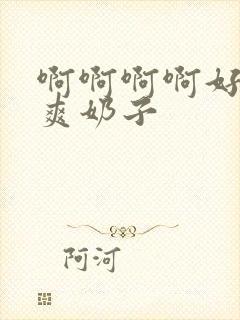 啊啊啊啊好
爽奶子
阿河